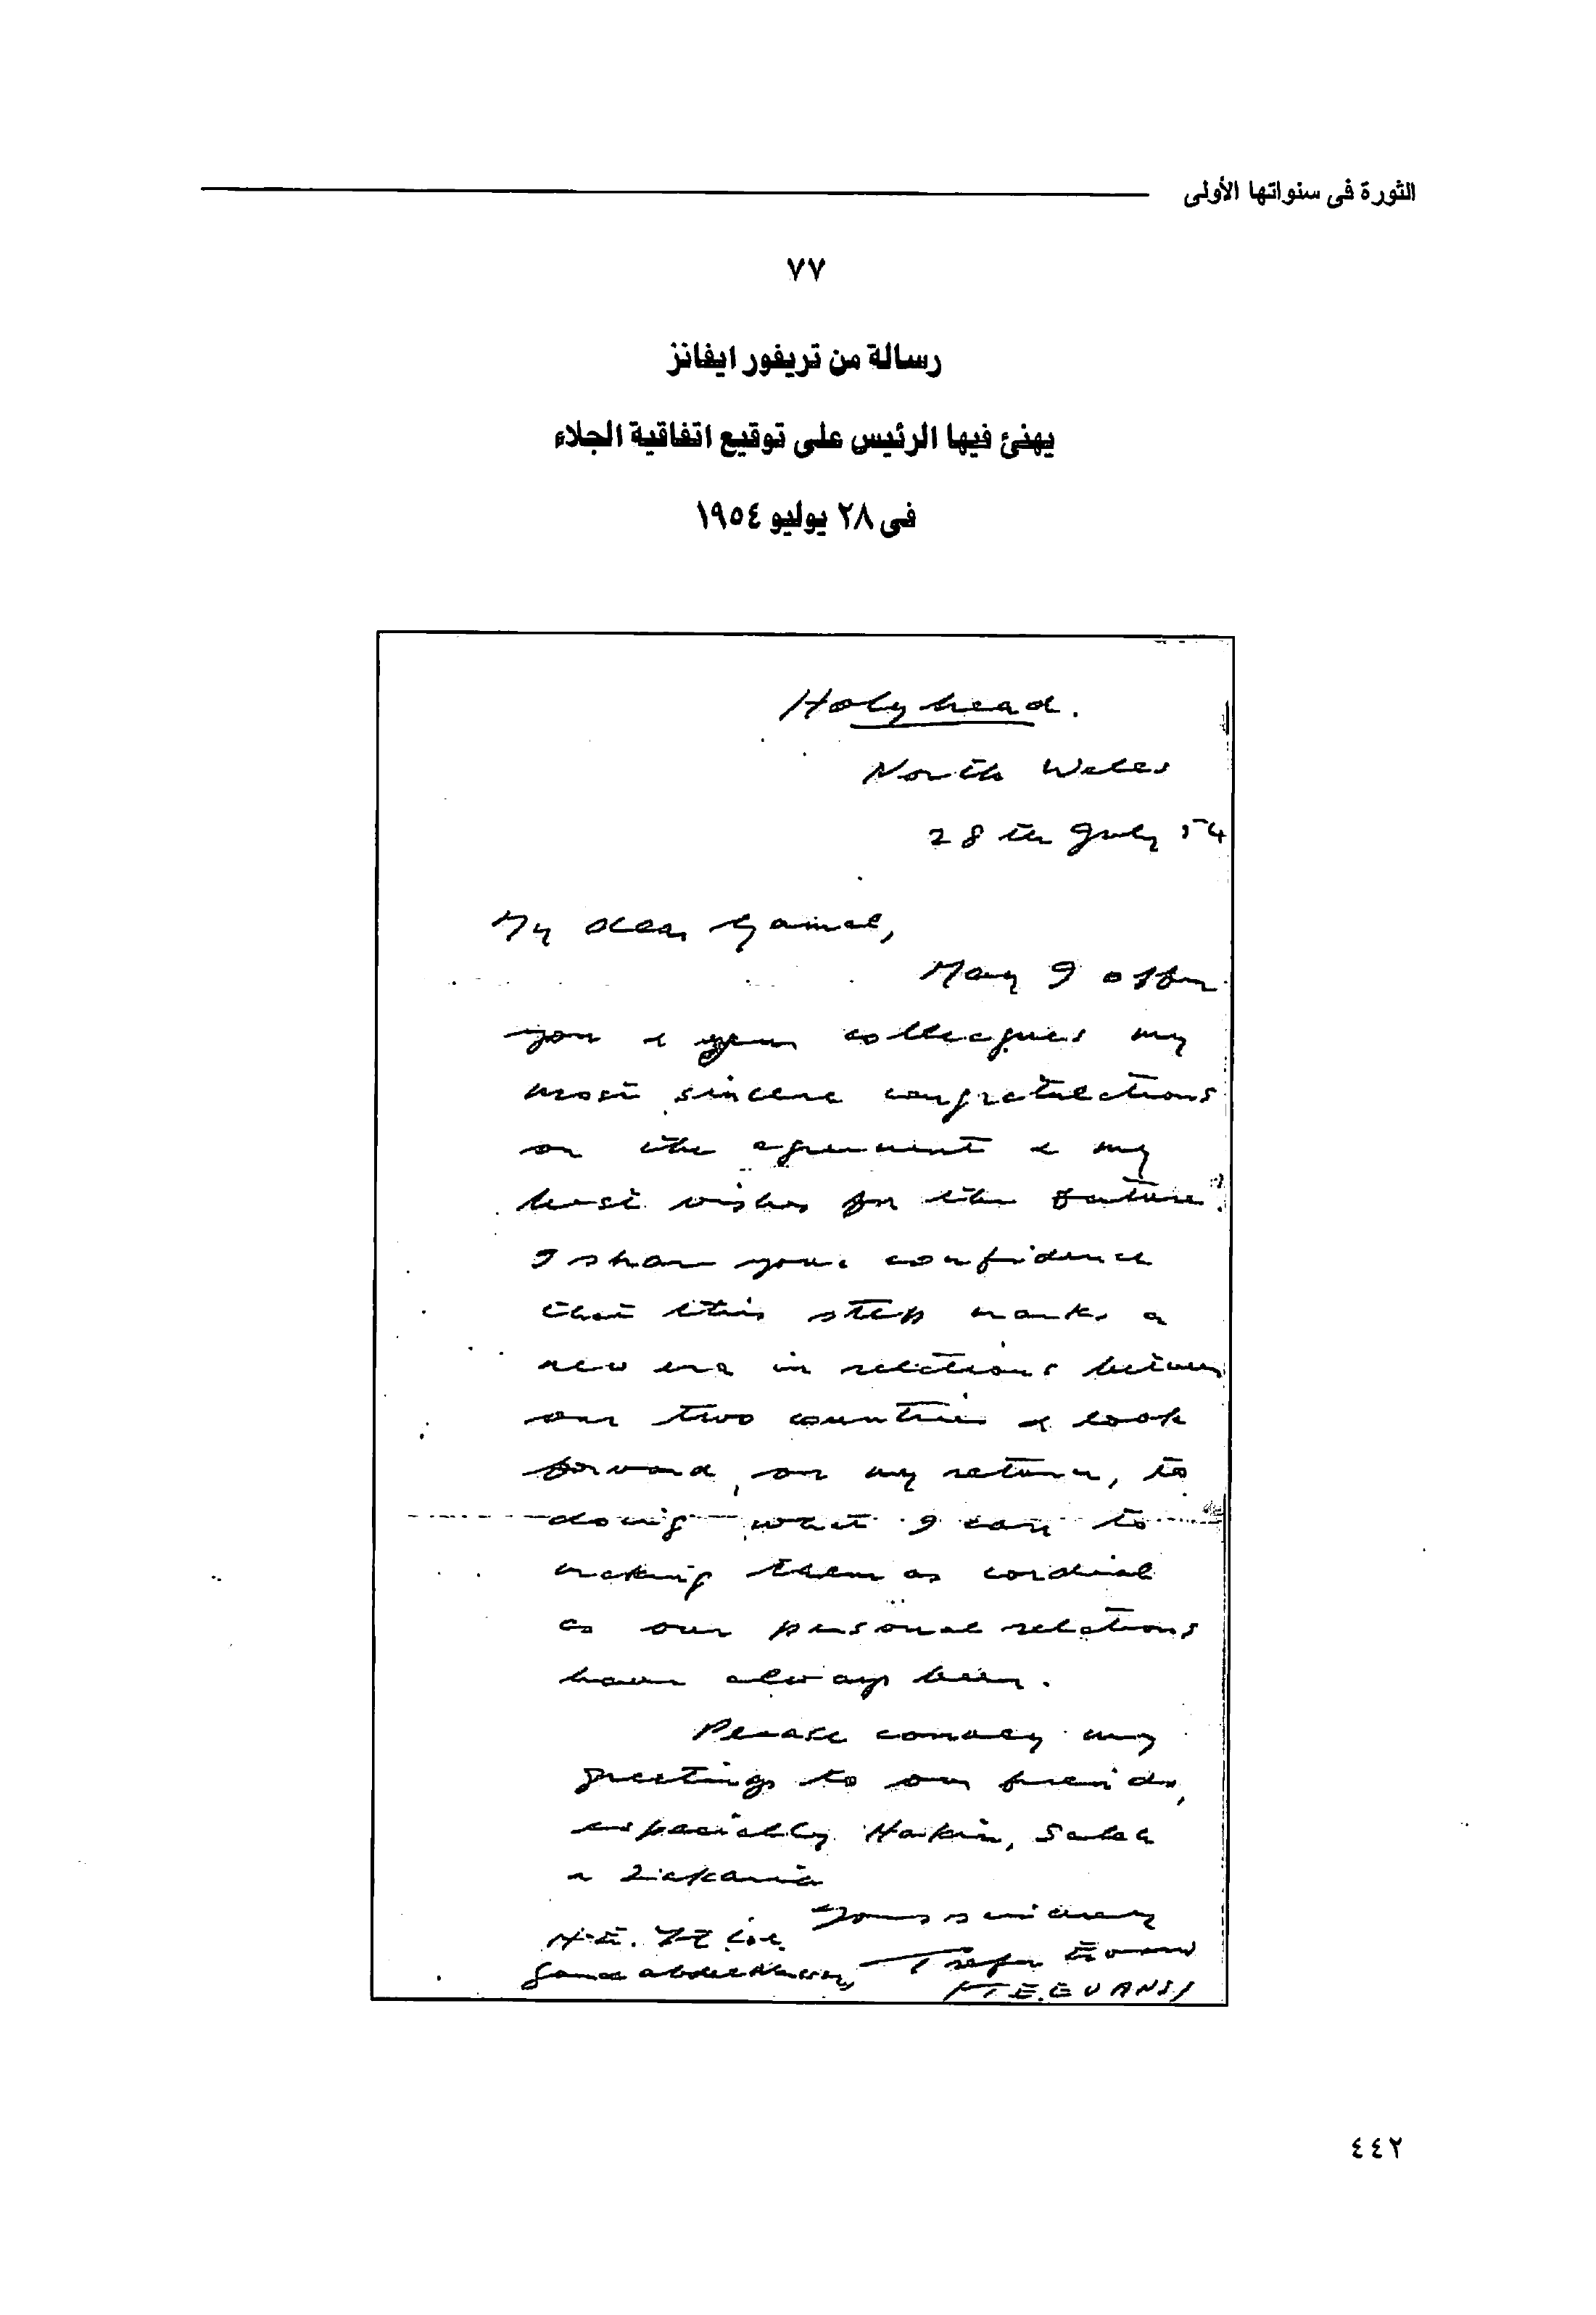 الثورة فى سنواتها الأولى
٧٧
رسالة من تريفور ايفانز
يهنئ فيها الرئيس على توقيع اتفاقية الجلاء
فى ٢٨ يوليو ١٩٥٤
Holyhead.
North Wales
28th July 54
My dear Gamal,
May I offer
you & your colleagues my
most sincere congratulations
on the agreement & my
best wishes for the future.
I share your confidence
that this step marks a
new era in relations between
our two countries & look
forward, on my return, to
doing what I can to
making them as cordial
as our personal relations
have always been.
Please convey my
greetings to our friends,
especially Hakim, Salah
& Zakaria
Yours sincerely
H.E. Lt Col.
Trefor Evans
Gamal Abdel Nasser
(T.E. EVANS)
٤٤٢